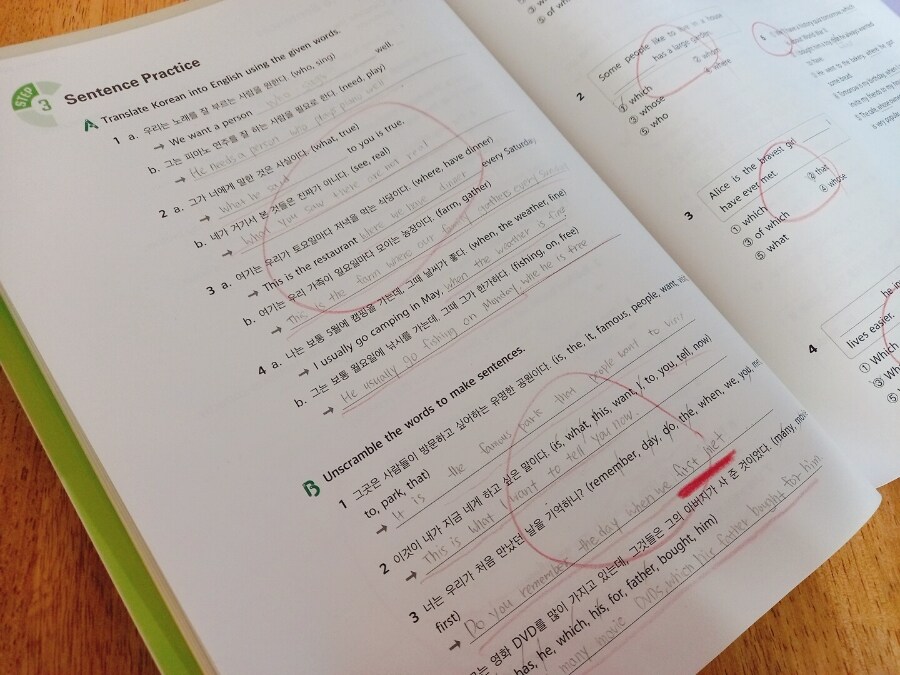 STEP 3 Sentence Practice
A Translate Korean into English using the given words.
1 a. 우리는 노래를 잘 부르는 사람을 원한다. (who, sing)
→ We want a person who well.
b. 그는 피아노 연주를 잘 하는 사람을 필요로 한다. (need, play)
→ He needs a person who
2 a. 그가 너에게 말한 것은 사실이다. (what, true)
→ What he said to you is true.
b. 내가 거기서 본 것들은 진짜가 아니다. (see, real)
→ What you saw there are not real
3 a. 여기는 우리가 토요일마다 저녁을 먹는 식당이다. (where, have dinner)
→ This is the restaurant where we have dinner every Saturday.
b. 여기는 우리 가족이 일요일마다 모이는 농장이다. (farm, gather)
→ This is the farm where our family gathers every Sunday
4 a. 나는 보통 5월에 캠핑을 가는데, 그때 날씨가 좋다. (when, the weather, fine)
→ I usually go camping in May, when the weather is fine
b. 그는 보통 월요일에 낚시를 가는데, 그때 그가 한가하다. (fishing, on, free)
→ He usually go fishing on Monday, he is
B Unscramble the words to make sentences.
1 그곳은 사람들이 방문하고 싶어하는 유명한 공원이다. (is, the, it, famous, people, want,
to, park, that)
→ It is the famous park that people want to
2 이것이 내가 지금 네게 하고 싶은 말이다. (is, what, this, want, I, to, you, tell, now)
→ This is what I want to tell you now.
3 너는 우리가 처음 만났던 날을 기억하니? (remember, day, do, the, when, we, you,
first)
→ Do you remember the day when we first met
영화 DVD를 많이 가지고 있는데, 그것들은 그의 아버지가 사 준 것이었다. (many,
has, he, which, his, for, father, bought, him)
many movie DVDs, which his father bought for him
③
⑤ of
2
Some people like to in a house
has a large garden.
① which
③ whose
④ where
⑤ who
3
Alice is the bravest girl
have ever met.
① which
② that
③ of which
④ whose
⑤ what
4
lives easier.
① Which
③
⑤